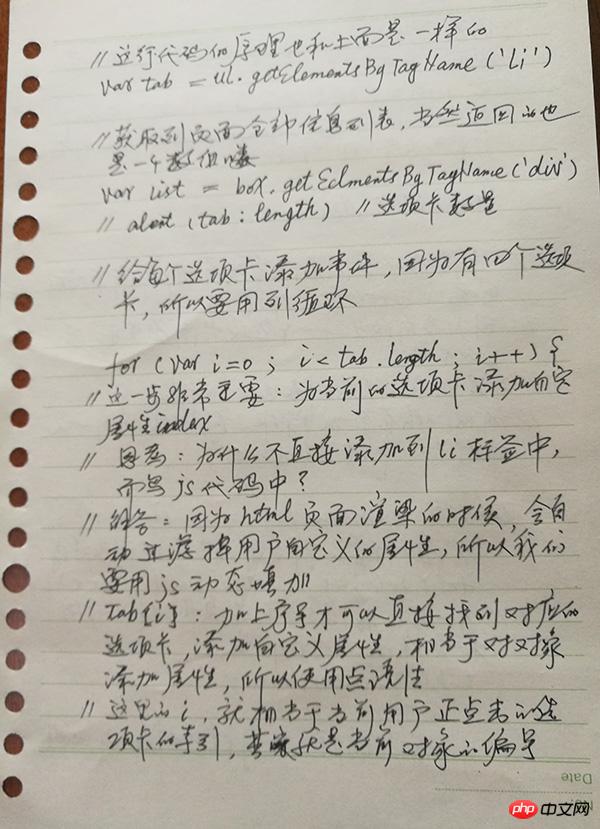 // 这行代码的原理也和上面是一样的
var tab = ul.getElementsByTagName('li')
// 获取到页面全部信息列表，当然返回的也
是一个数组喽
var list = box.getEelmentsByTagName('div')
// alert(tab.length) // 选项卡数量
// 给每个选项卡添加事件，因为有四个选项
卡，所以要用到循环
for (var i=0; i<tab.length; i++) {
// 这一步非常重要：为当前的选项卡添加自定
属性index
// 思考：为什么不直接添加到li标签中，
而写js代码中？
// 解答：因为html页面渲染的时候，会自
动过滤掉用户自定义的属性，所以我们
要用js动态填加
// tab[i]：加上序号才可以直接找到对应的
选项卡，添加自定义属性，相当于对对象
添加属性，所以使用点语法
// 这里的i，就相当于当前用户正点击的选
项卡的索引，其实就是当前对象的编号
Date
No.
php 中文网